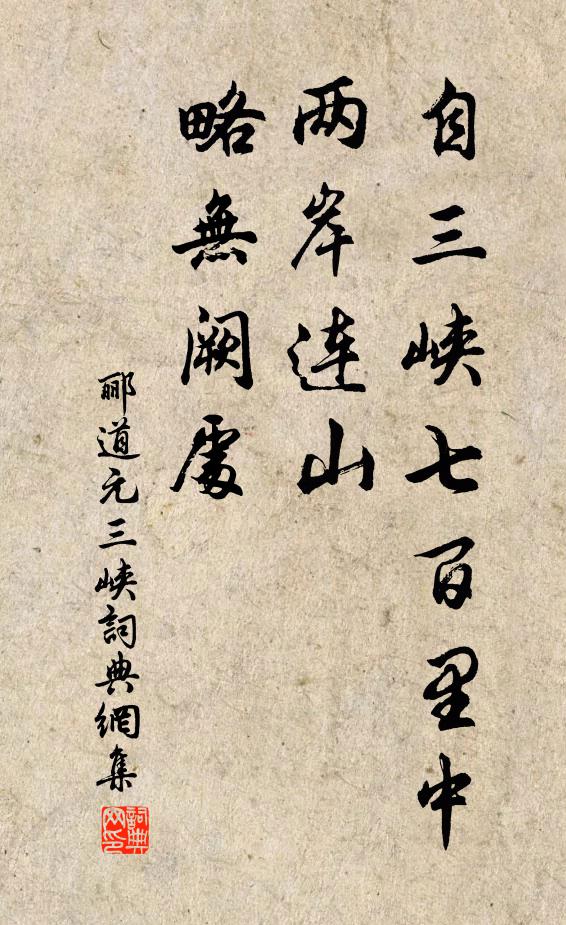 自三峡七百里中
两岸连山
略無阙處
郦道元三峡詞典網集
詞典
网印